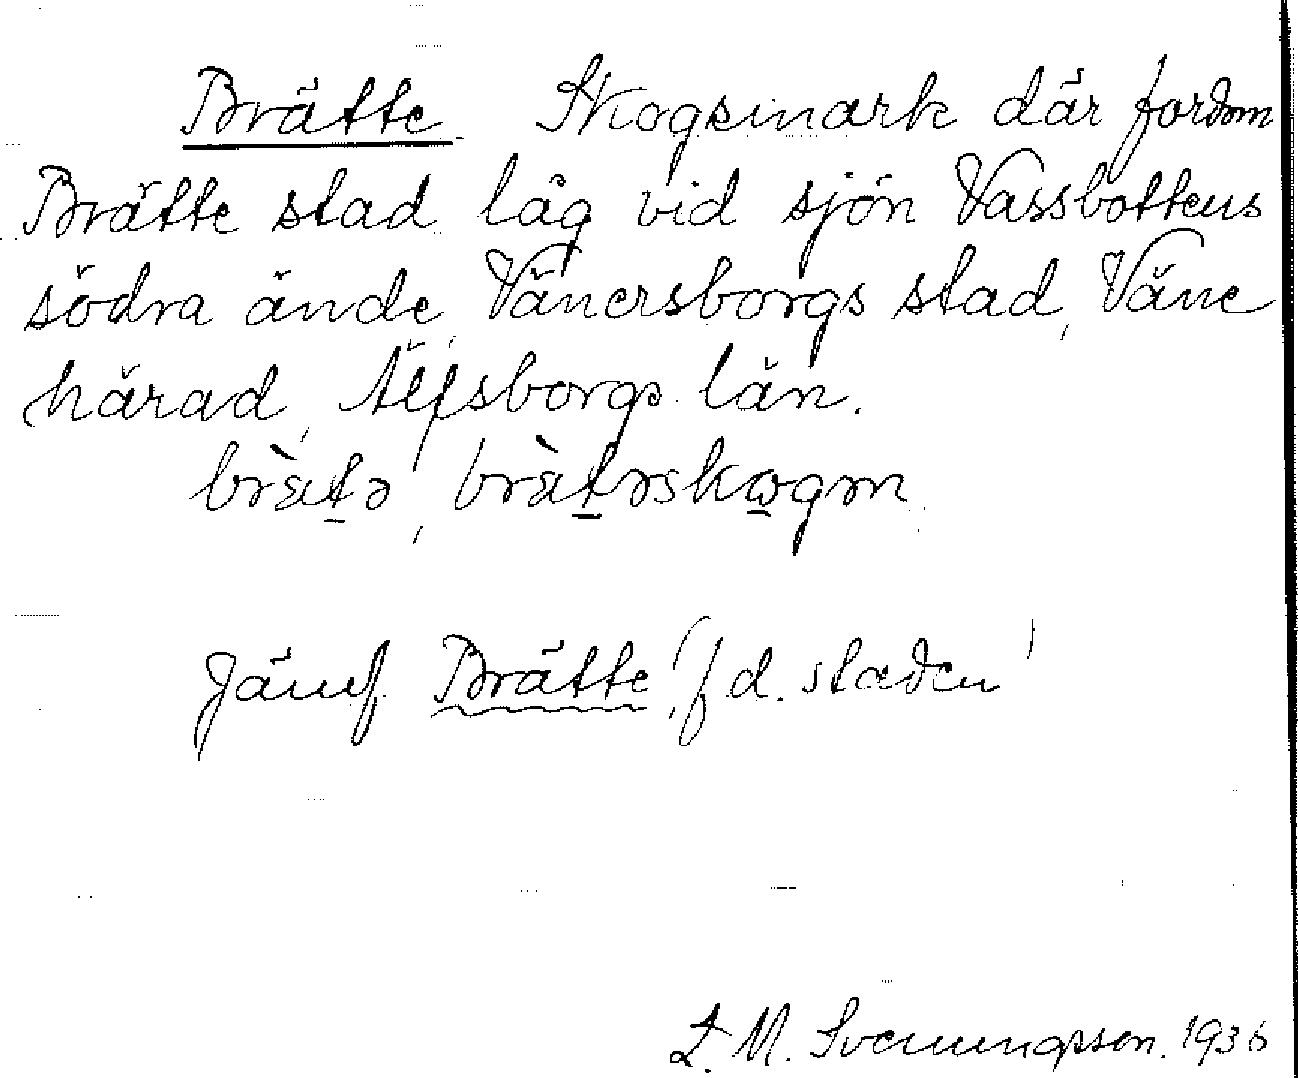 Brätte. Skogsmark där fordom
Brätte stad låg vid sjön Vassbottens
södra ände, Vänersborgs stad, Väne
härad, Älfsborgs län.
bràtə, bràtəskogən
Jämf. Brätte (f. d. staden)
L. M. Svenungsson. 1936